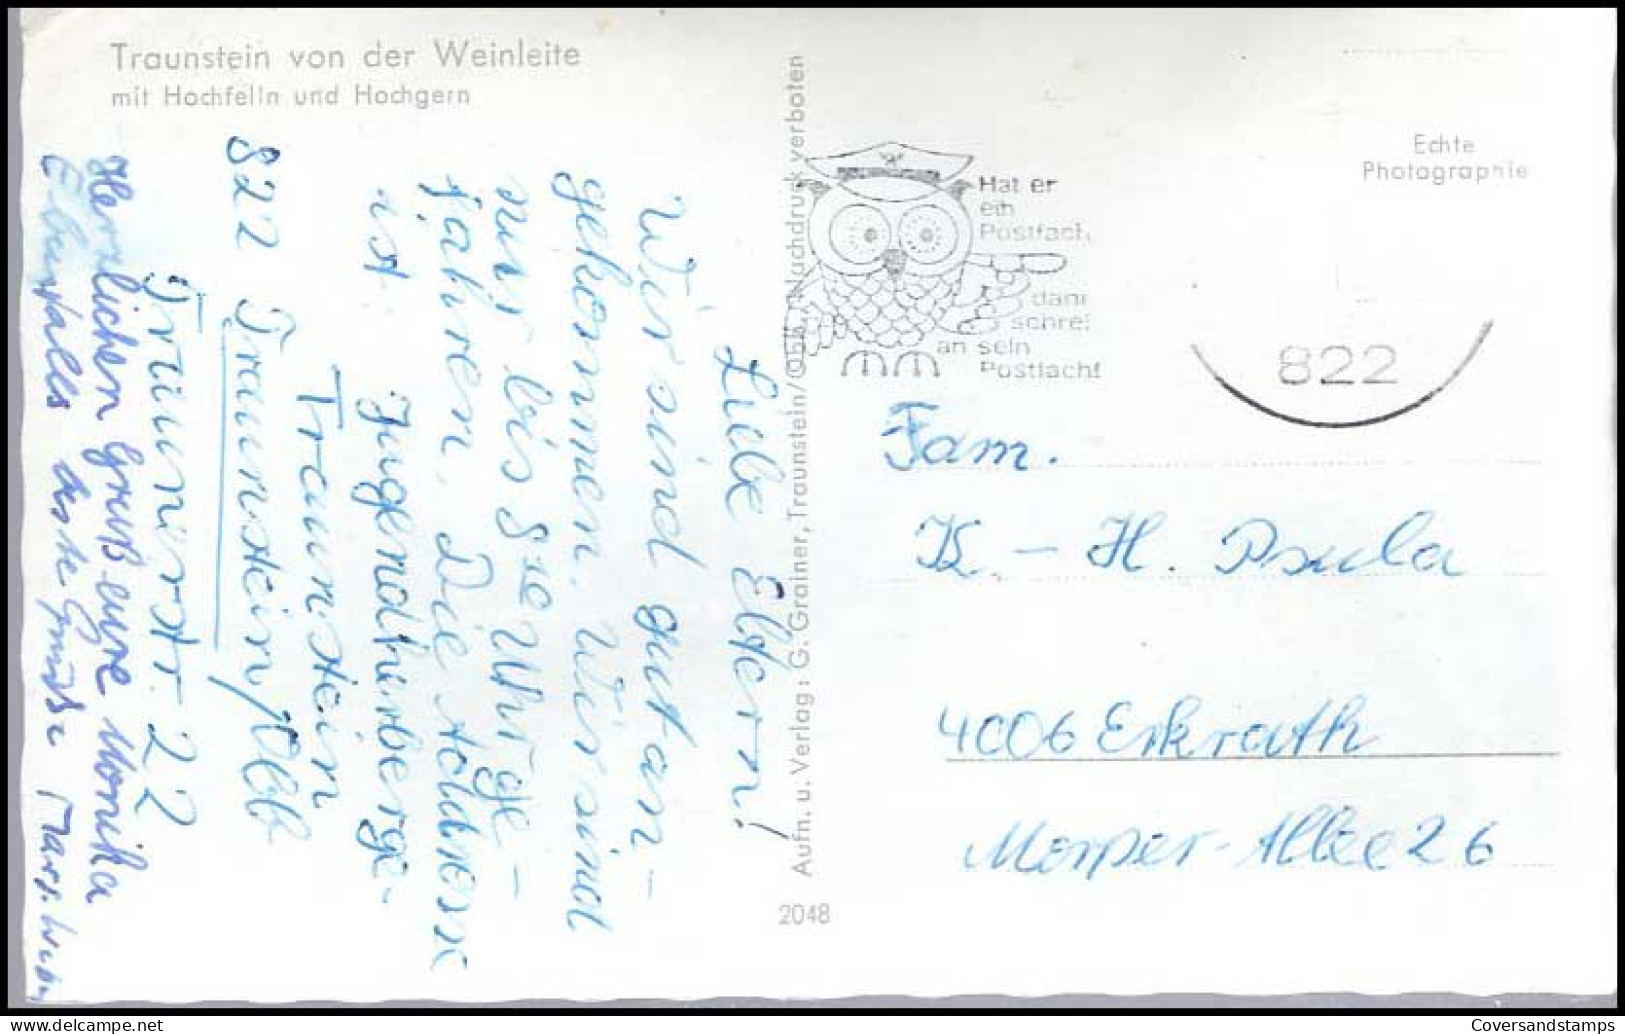 Traunstein von der Weinleite
mit Hochfelln und Hochgern
Liebe Eltern!
Wir sind gut an-
gekommen. Wir sind
nur bis 8 Uhr ge-
fahren. Die Adresse
ist: Jugendherberge-
Traunstein
822 Traunstein/Obb
Traunerstr. 22
Herzlichen Gruß eure Monika
Ebenfalls beste Grüße
Aufn. u. Verlag: G. Grainer, Traunstein/Obb. / Nachdruck verboten
2048
Hat er
ein
Postfach,
dann
schreib
an sein
Postfach!
822
Echte
Photographie
Fam.
K.-H. Psula
4006 Erkrath
Morper-Allee 26
Coversandstamps